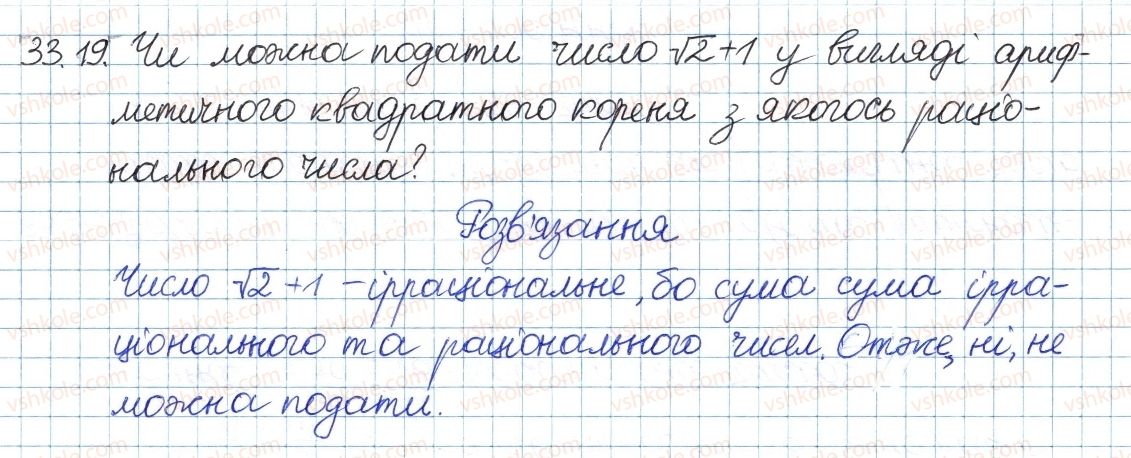 33.19. Чи можна подати число √2+1 у вигляді ариф-
метичного квадратного кореня з якогось раціо-
нального числа?
Розв'язання
Число √2+1 – ірраціональне, бо сума сума ірра-
ціонального та раціонального чисел. Отже, ні, не
можна подати.